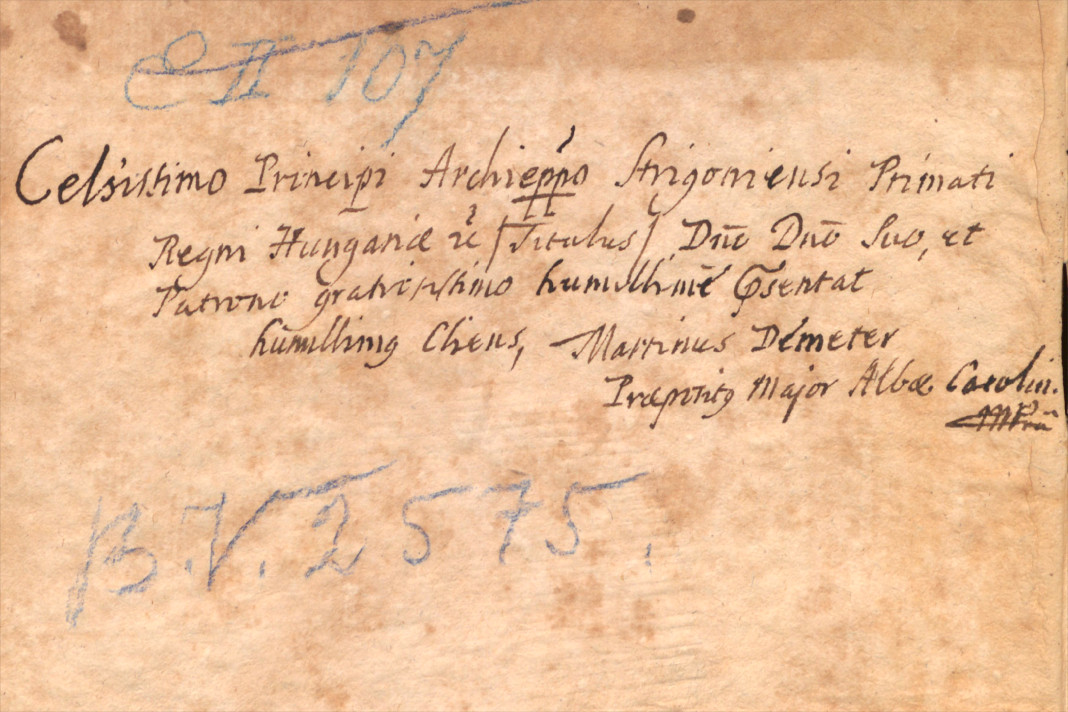 E II 107
Celsissimo Principi Archieppo Strigoniensi Primati
Regni Hungariæ &c [Titulus] Dno Dno Suo, et
Patrono gratiosissimo humillime Psentat
humillimꝰ Cliens, Martinus Demeter
Præpositꝰ Major Albæ Carolin.
B.V. 2575.